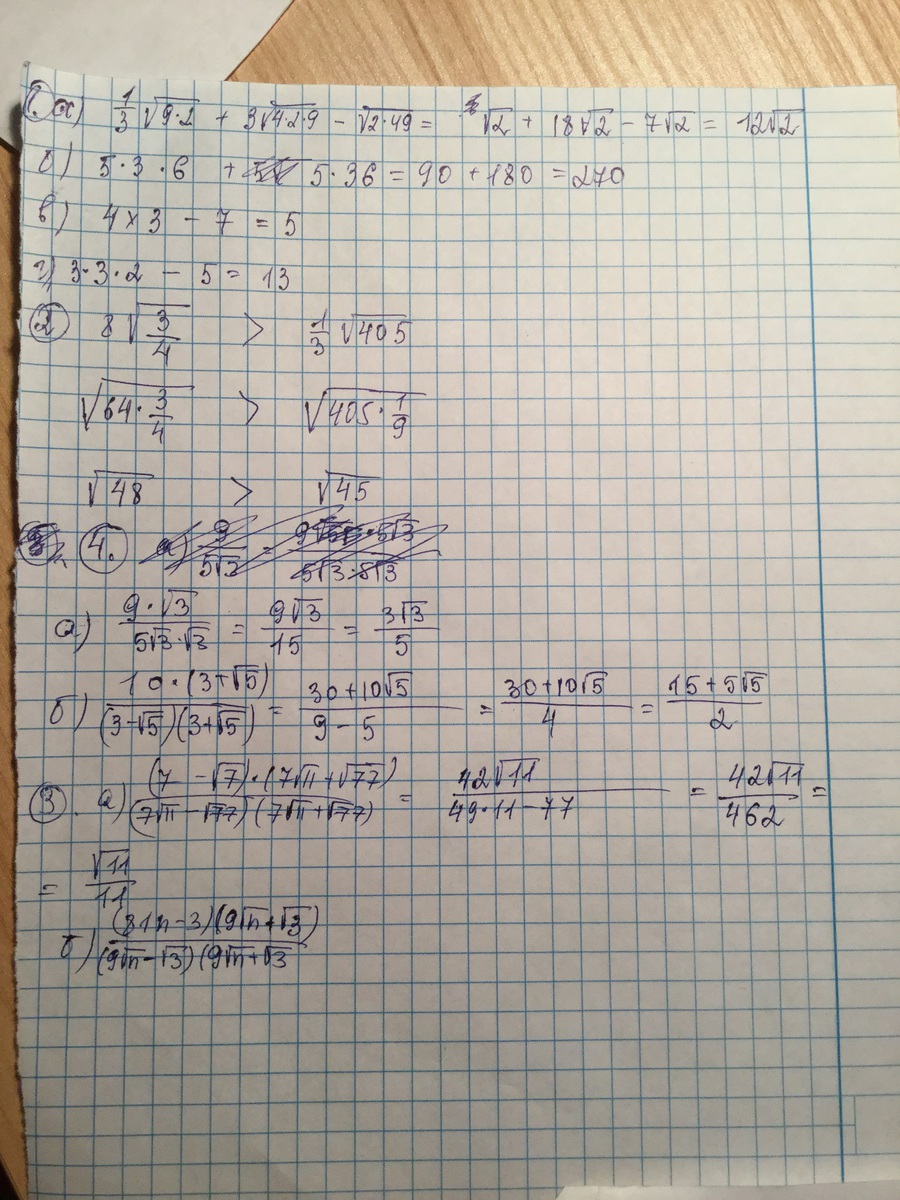 ① а) 1/3 √(9·2) + 3√(4·2·9) − √(2·49) = √2 + 18√2 − 7√2 = 12√2
б) 5·3·6 + 5·36 = 90 + 180 = 270
в) 4×3 − 7 = 5
г) 3·3·2 − 5 = 13
② 8√(3/4) > 1/3 √405
√(64·3/4) > √(405·1/9)
√48 > √45
④. а) 9/(5√3) =
а) (9·√3)/(5√3·√3) = 9√3/15 = 3√3/5
б) 10·(3+√5)/((3−√5)(3+√5)) = (30+10√5)/(9−5) = (30+10√5)/4 = (15+5√5)/2
③. а) (7−√7)·(7√11+√77)/((7√11−√77)(7√11+√77)) = 42√11/(49·11−77) = 42√11/462 =
= √11/11
б) (81n−3)(9√n+√3)/((9√n−√3)(9√n+√3